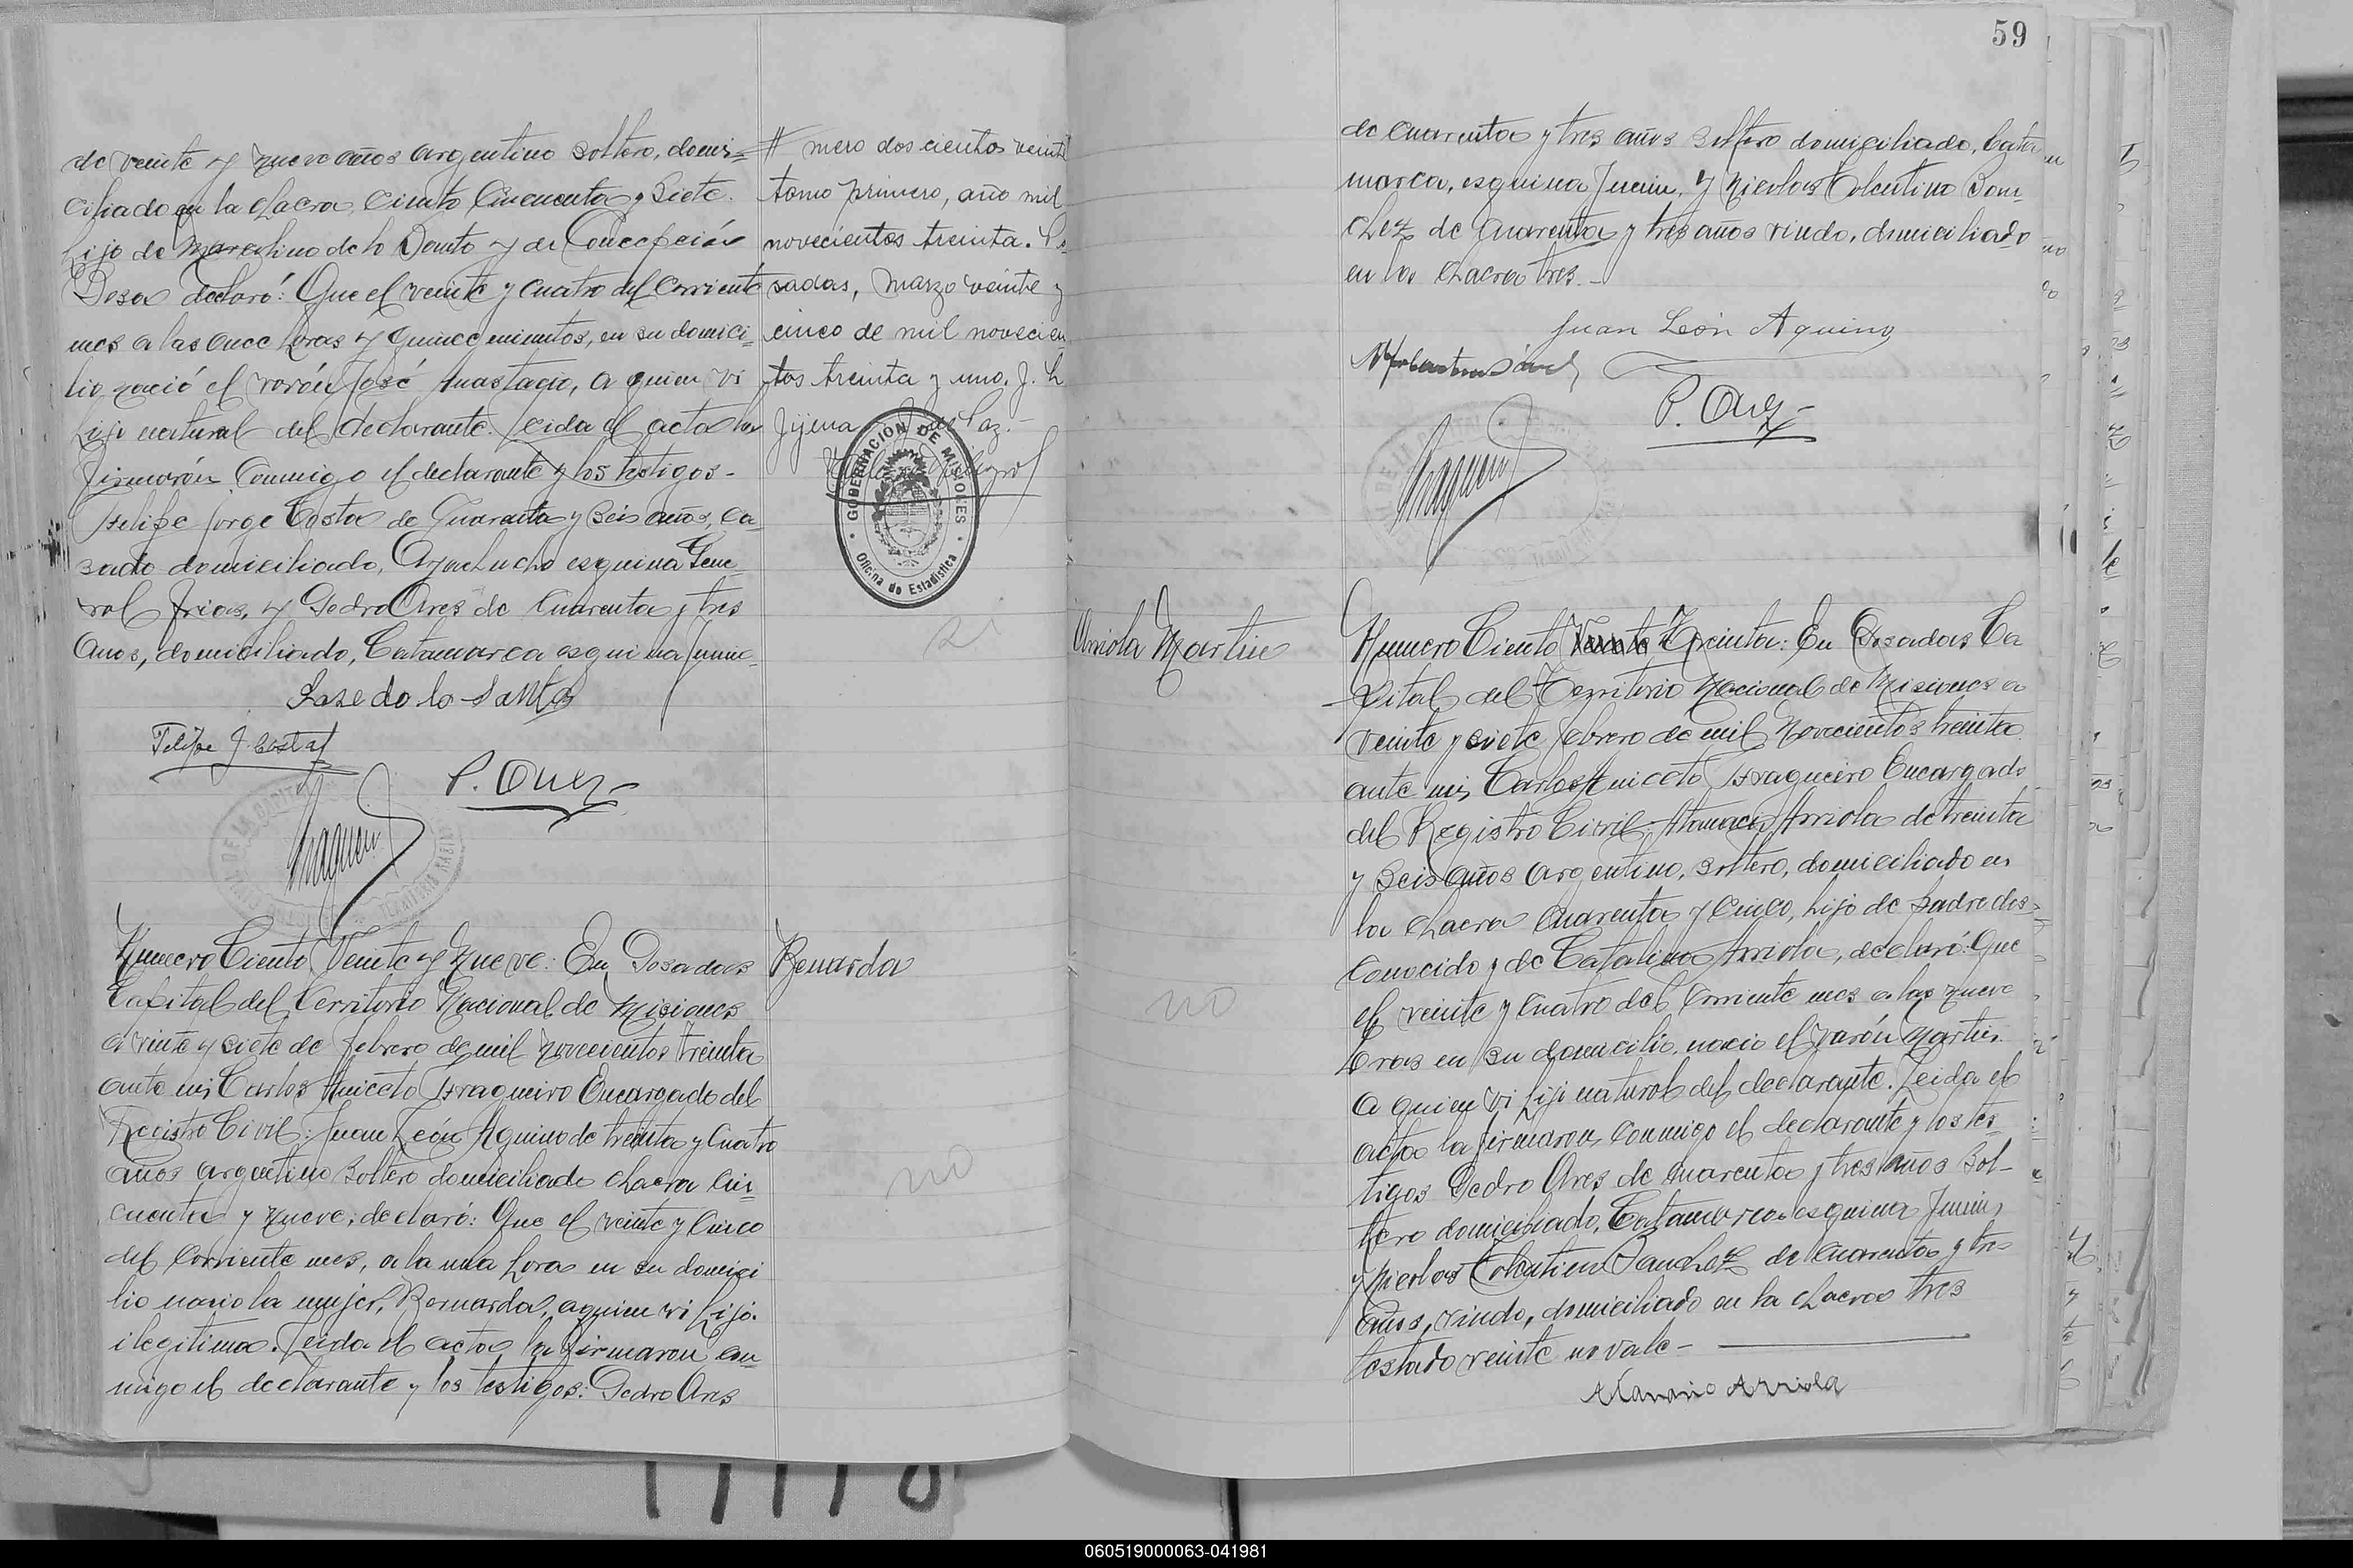 de veinte y nueve años argentino soltero, domi-
ciliado en la chacra, Ciento Cincuenta y Siete.
hijo de Marcelino de lo Santo y de Concepción
Sosa declaró: Que el veinte y cuatro del corriente
mes a las once horas y quince minutos, en su domici-
lio nació el varón José Anastacio, a quien vi
hijo natural del declarante. Leida el acta la
firmarón conmigo el declarante y los testigos-
Felipe Jorge Costa de Cuarenta y seis años, ca-
sado domiciliado, Ayacucho esquina Gene-
ral Frias, y Pedro Ares de Cuarenta y tres
años, domiciliado, Catamarca esquina Junin-
Jose do lo Santo
Felipe J. Costa
P. Ares
Numero Ciento Veinte y Nueve: En Posadas
Capital del Territorio Nacional de Misiones
a veinte y siete de febrero de mil novecientos treinta
ante mi Carlos Aniceto Fragueiro Encargado del
Registro Civil: Juan León Aquino de treinta y cuatro
años argentino soltero domiciliado chacra cin-
cuenta y nueve, declaró: Que el veinte y cinco
del corriente mes, a la una hora en su domici
lio nacio la mujer, Bernarda, a quien vi hija.
ilegitima. Leida el acta la firmaron con-
migo el declarante y los testigos: Pedro Ares
# mero doscientos veinte
tomo primero, año mil
novecientos treinta. Po-
sadas, marzo veinte y
cinco de mil novecien
tos treinta y uno. J. L
Jijena Juez Paz.-
GOBERNACION DE MISIONES
Oficina de Estadistica
Bernarda
no
59
de cuarenta y tres años soltero domiciliado, Cata
marca, esquina Junin, y Nicolas Tolentino San-
chez de cuarenta y tres años viudo, domiciliado
en la chacra tres.-
Juan León Aquino
P. Ares
Arriola Martin
no
Numero Ciento Veinte Treinta: En Posadas Ca
pital del Territorio Nacional de Misiones a
veinte y siete febrero de mil novecientos treinta
ante mi, Carlos Aniceto Fragueiro Encargado
del Registro Civil: Atanacio Arriola de treinta
y seis años argentino, soltero, domiciliado en
la chacra cuarenta y cinco, hijo de padre des-
conocido y de Catalina Arriola, declaró: Que
el veinte y cuatro del corriente mes a las nueve
oras en su domicilio, nacio el varón Martin.
a quien vi hijo natural del declarante. Leida el
acta la firmaron conmigo el declarante y los tes-
tigos Pedro Ares de cuarenta y tres años sol-
tero domiciliado, Catamarca esquina Junin,
y Nicolas Tolentino Sanchez de cuarenta y tres
años, viudo, domiciliado en la chacra tres
testado veinte no vale-
Atanacio Arriola
060519000063-041981